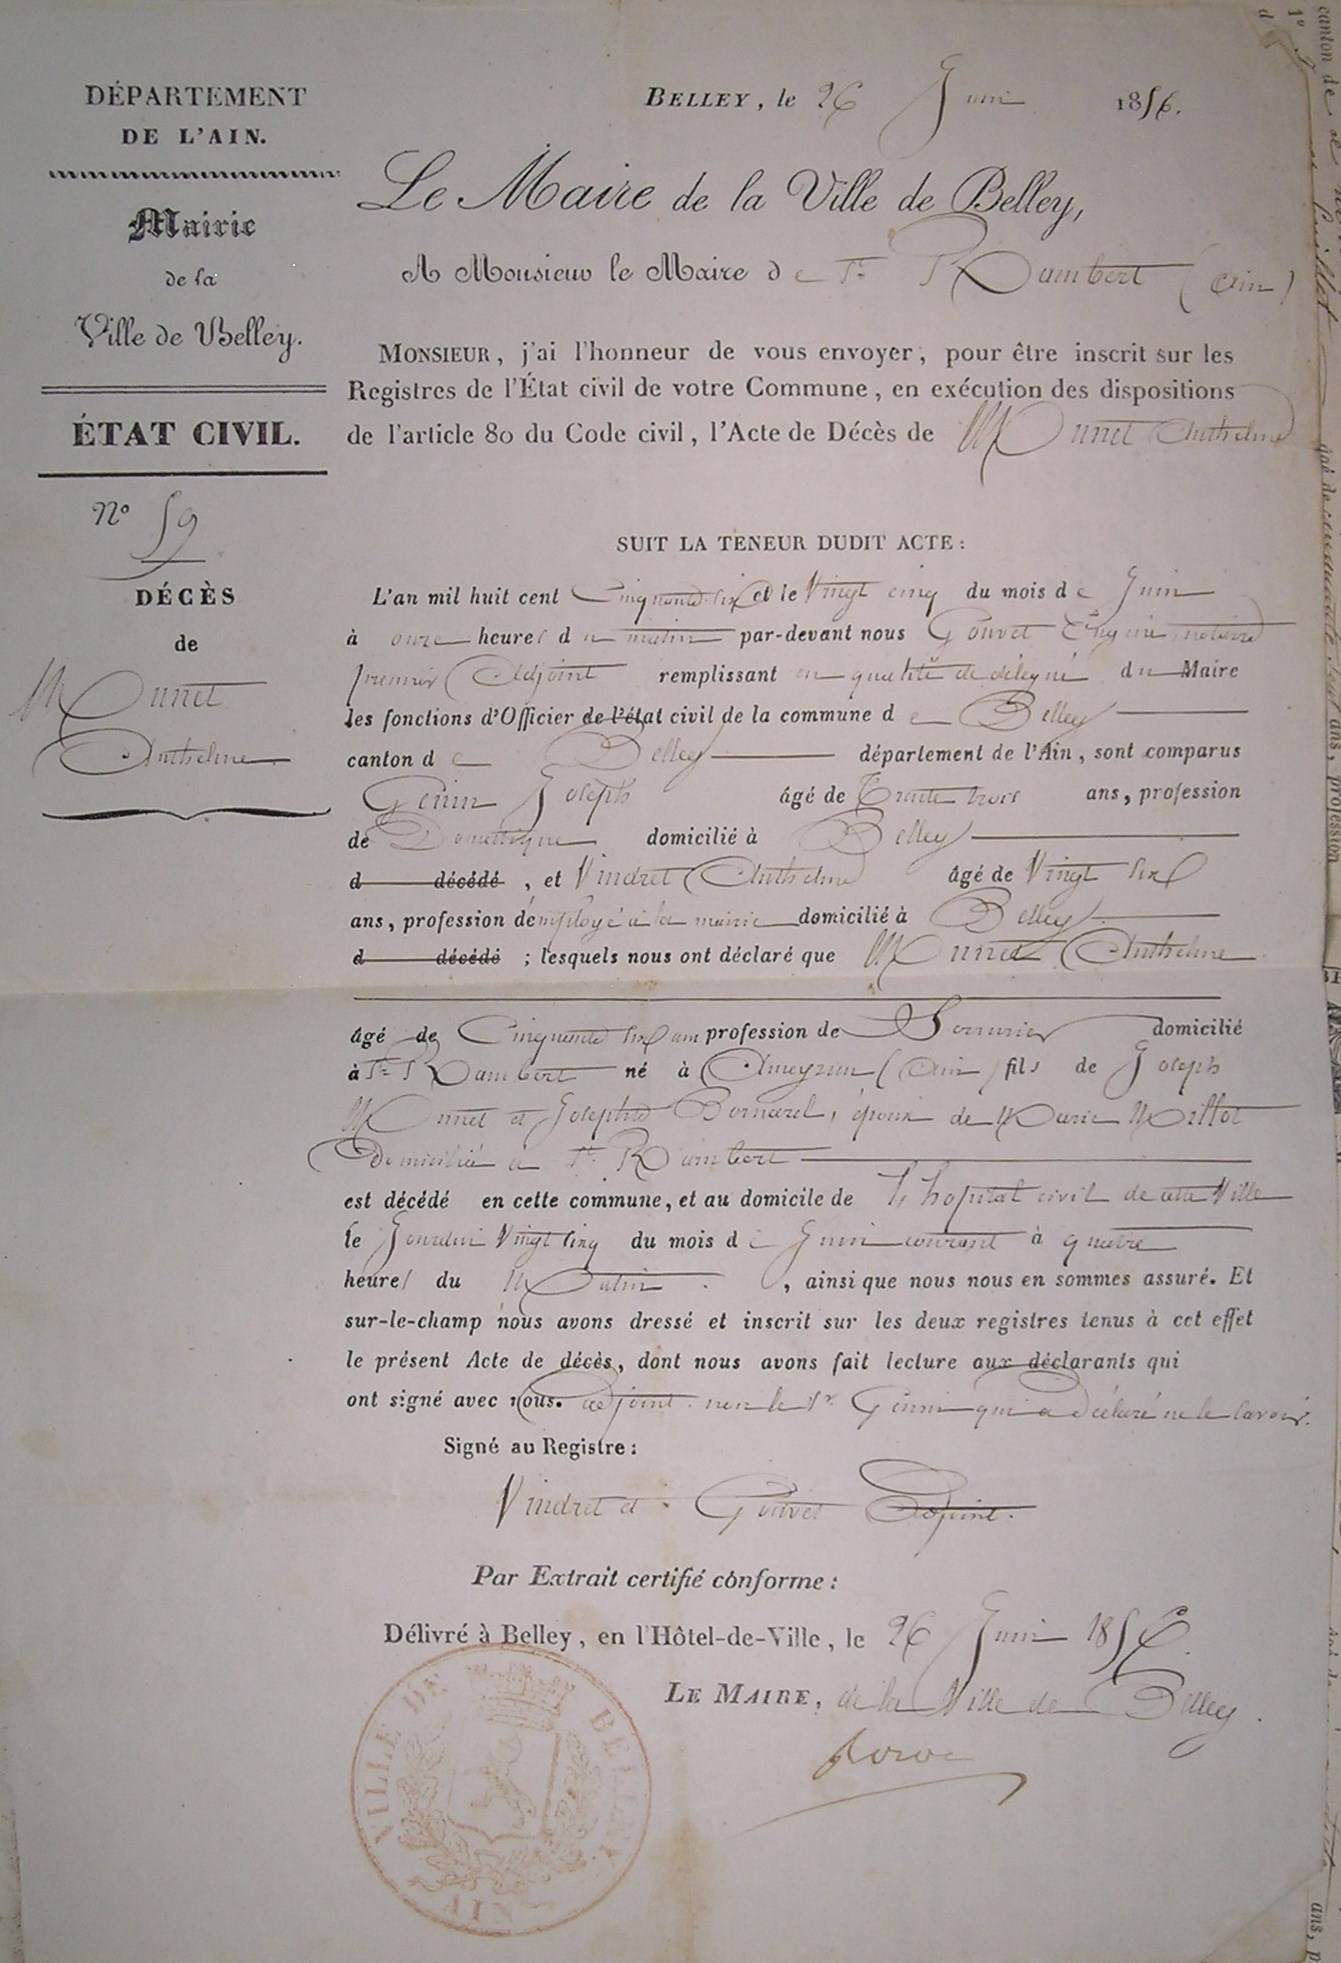 DÉPARTEMENT
DE L'AIN.
Mairie
de la
Ville de Belley.
ÉTAT CIVIL.
N° 59
DÉCÈS
de
Munet
Anthelme
BELLEY, le 26 Juin 1856.
Le Maire de la Ville de Belley,
A Monsieur le Maire de St Rambert (Ain)
MONSIEUR, j'ai l'honneur de vous envoyer, pour être inscrit sur les
Registres de l'État civil de votre Commune, en exécution des dispositions
de l'article 80 du Code civil, l'Acte de Décès de Munet Anthelme
SUIT LA TENEUR DUDIT ACTE:
L'an mil huit cent Cinquante-six et le Vingt cinq du mois de Juin
à onze heures du matin par-devant nous Gouvet Eugène notaire
premier Adjoint remplissant en qualité de délégué du Maire
les fonctions d'Officier de l'état civil de la commune de Belley
canton de Belley département de l'Ain, sont comparus
Genin Joseph âgé de Trente trois ans, profession
de Domestique domicilié à Belley
d décédé, et Vindret Anthelme âgé de Vingt six
ans, profession d'employé à la mairie domicilié à Belley
d décédé; lesquels nous ont déclaré que Munet Anthelme
âgé de Cinquante six ans profession de Serrurier domicilié
à St Rambert né à Ameyzieu (Ain) fils de Joseph
Munet et Josephte Bornarel, époux de Marie Millot
Domiciliée à St Rambert
est décédé en cette commune, et au domicile de l'hopital civil de cette Ville
le Jourdui Vingt cinq du mois de Juin courant à quatre
heures du Matin, ainsi que nous nous en sommes assuré. Et
sur-le-champ nous avons dressé et inscrit sur les deux registres tenus à cet effet
le présent Acte de décès, dont nous avons fait lecture aux déclarants qui
ont signé avec nous. adjoint. non le Sr Genin qui a Déclaré ne le savoir.
Signé au Registre:
Vindret et Gouvet Adjoint.
Par Extrait certifié conforme:
Délivré à Belley, en l'Hôtel-de-Ville, le 26 Juin 1856
LE MAIRE, de la Ville de Belley.
VILLE DE BELLEY
AIN